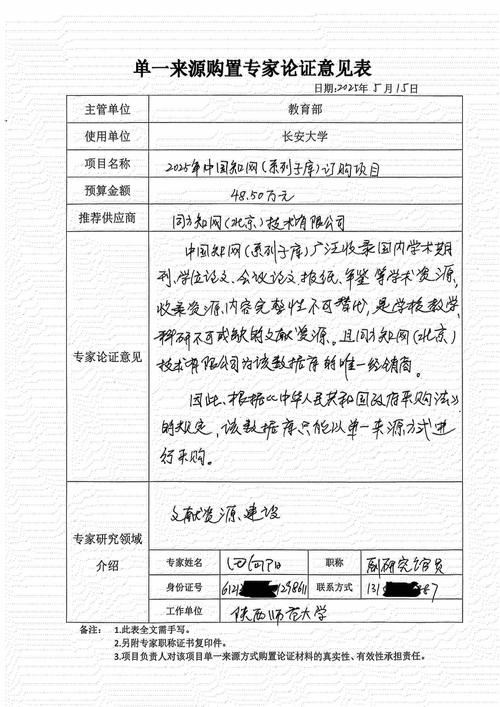 单一来源购置专家论证意见表
日期:2025年5月15日
主管单位 教育部
使用单位 长安大学
项目名称 2025年中国知网(系列子库)订购项目
预算金额 48.50万元
推荐供应商 同方知网(北京)技术有限公司
专家论证意见
中国知网(系列子库)广泛收录国内学术期
刊、学位论文、会议论文、报纸、年鉴等学术资源,
收录资源、内容完整性不可替代,是学校教学、
科研不可或缺的文献资源。且同方知网(北京)
技术有限公司为该数据库的唯一经销商。
因此、根据《中华人民共和国政府采购法》
的规定,该数据库只能以单一来源方式进
行采购。
专家研究领域
介绍
文献资源建设
专家姓名 职称 副研究馆员
身份证号 联系方式
工作单位 陕西师范大学
备注: 1.此表全文需手写。
2.另附专家职称证书复印件。
3.项目负责人对该项目单一来源方式购置论证材料的真实性、有效性承担责任。